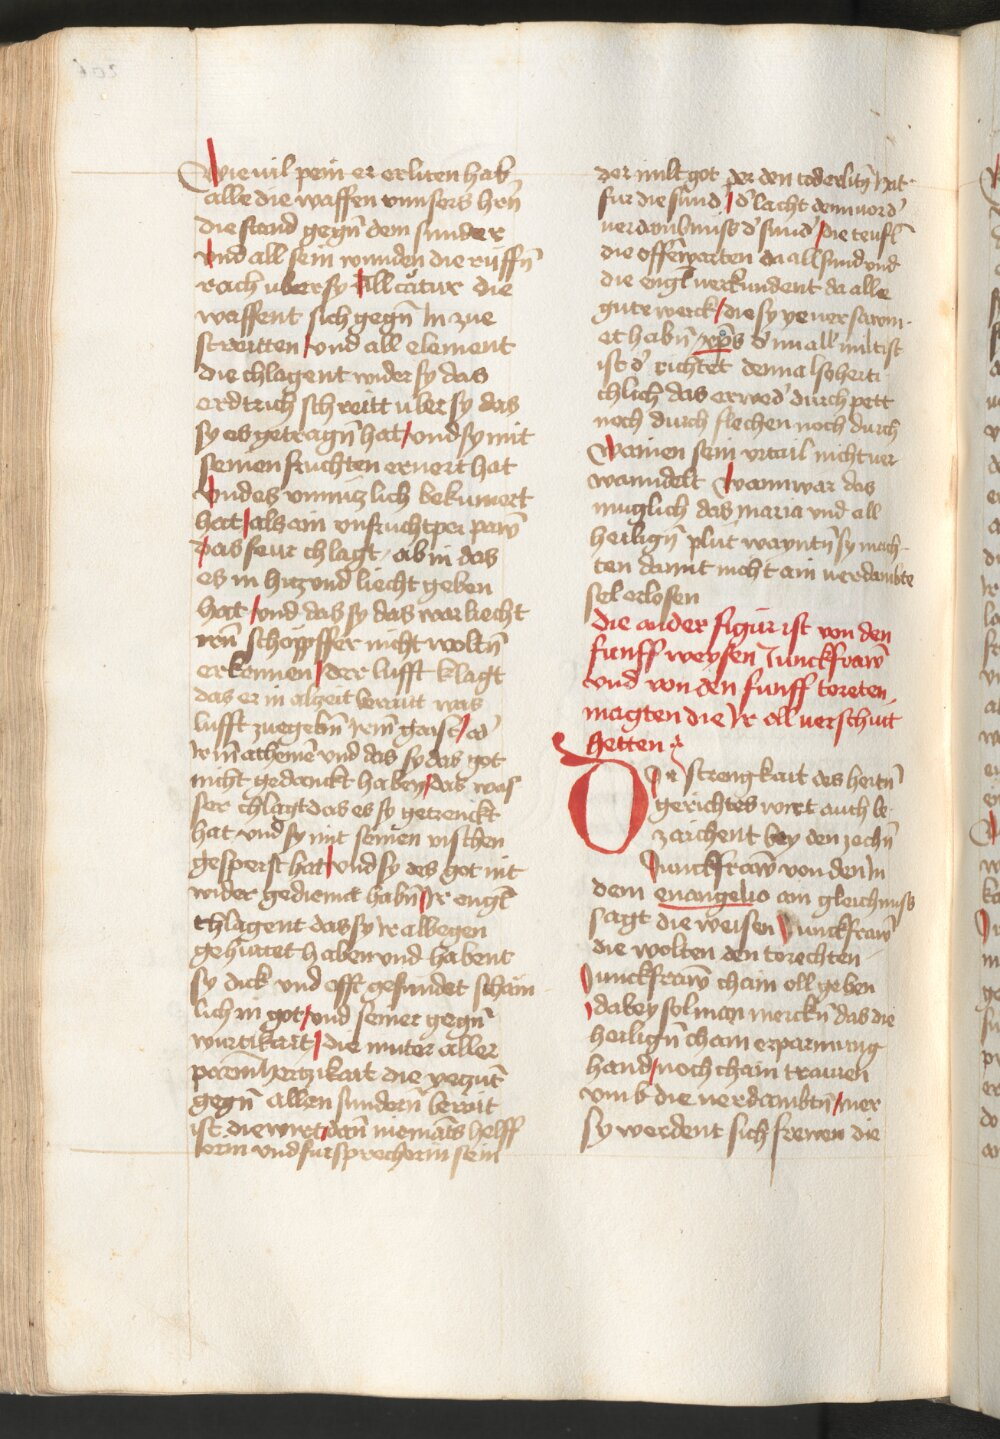 Wie vil pein er erliten hab
alle die waffen vnnsers hr̄n
die stand gegn̄ dem sunder
vnd all sein wunden die rüffn̄
rach uber sy All cr̄atur die
waffent sich gegn̄ In zue
streitten vnd all element
die chlagent wider sy das
erdtrich schreitt uber sy das
sy es getragn̄ hat / vnd sy mit
seinen fruchten ernert hat
vnd es vnnützlich bekumert
hat / als ain vnfruchtper pawm̄
das feur chlagt / ab in das
es in hitz vnd liecht geben
hat / vnd das sy das war liecht
irn̄ schöppffer nicht woltn̄
erkennen / der lufft klagt
das er in alzeit berait was
lufft zuegebn̄ irem gaist / ad'
irm̄ atheme vnd das sy das got
nicht gedanckt haben / das was
ser chlagt das es sy getrenckt
hat vnd sy mit seinen vischen
gesperst hat / vnd sy des got nit
wider gedienet habn̄ Ir engl̄
chlagent das sy ir albegen
gehüttet haben vnd habent
sy dick vnd offt gesündet scham
lich in got / vnd seiner gegn̄
wurtikait / die muter aller
parm̄hertzikait die yetzūt
gegn̄ allen sundern̄ berait
ist die wirt dan̄ niemāts helff
erin vnd fürsprecherin sein
der milt got der den tod erlitn̄ hat
für die sund / d' lacht denn vor d'
verdambnuss d' sund' / die teufl̄
die offenwarten da all sund vnd
die engl̄ verkundent da alle
gute werck / die sy ye versawm
et habn̄ / xp̄s d' nu all' miltist
ist d' richtet denn also herti
chlich das er wed' durch pett
noch durch flechen noch durch
wainen sein vrtail nicht ver
wanndelt Wann war das
muglich das maria vnd all
heilign̄ plut wayntn̄ sy moch
ten damit nicht ain verdambte
sel erlosen
die ander figur ist von den
funff weysen Junckfrawn̄
vnd von den funff toreten
magten die ir oll verschütt
hetten
Die strengkait des hertn̄
gerichtes wirt auch be
zaichent bey den zechn̄
Junckfrawn̄ von den In
dem euangelio ain gleichnuss
sagt die weisen Junckfrawn̄
die wolten den torechten
Junckfrawn̄ chain oll geben
dabey sol man merckn̄ das die
heilign̄ chain erparmung
hand / noch chain trawren
vmb die verdambtn̄ / mer
sy werdent sich frewen die